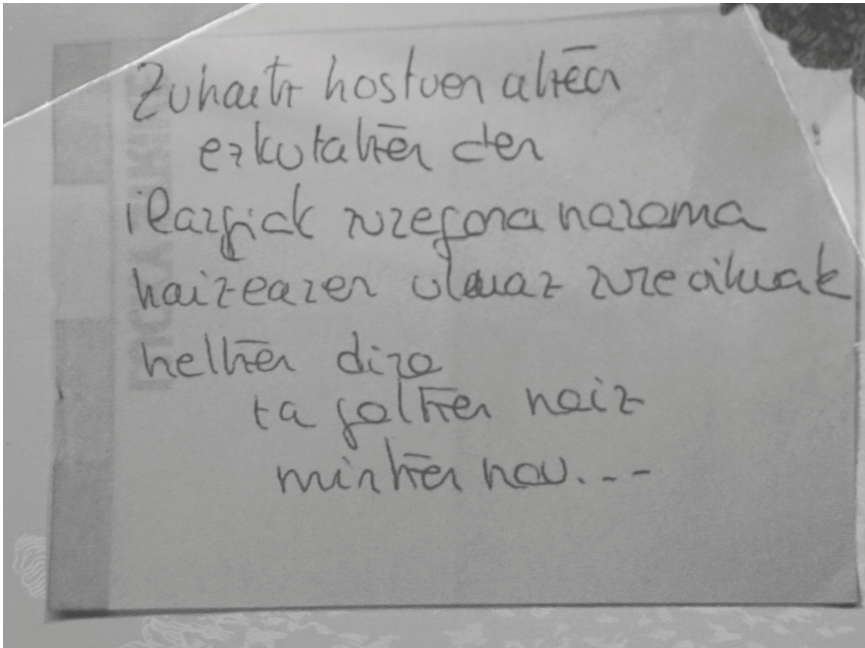 Zuhaitz hostoen atzean
ezkutatzen den
ilargiak zuregana narama
haizearen uluaz zure oihuak
heltzen dira
ta galtzen naiz
mintzen nau...